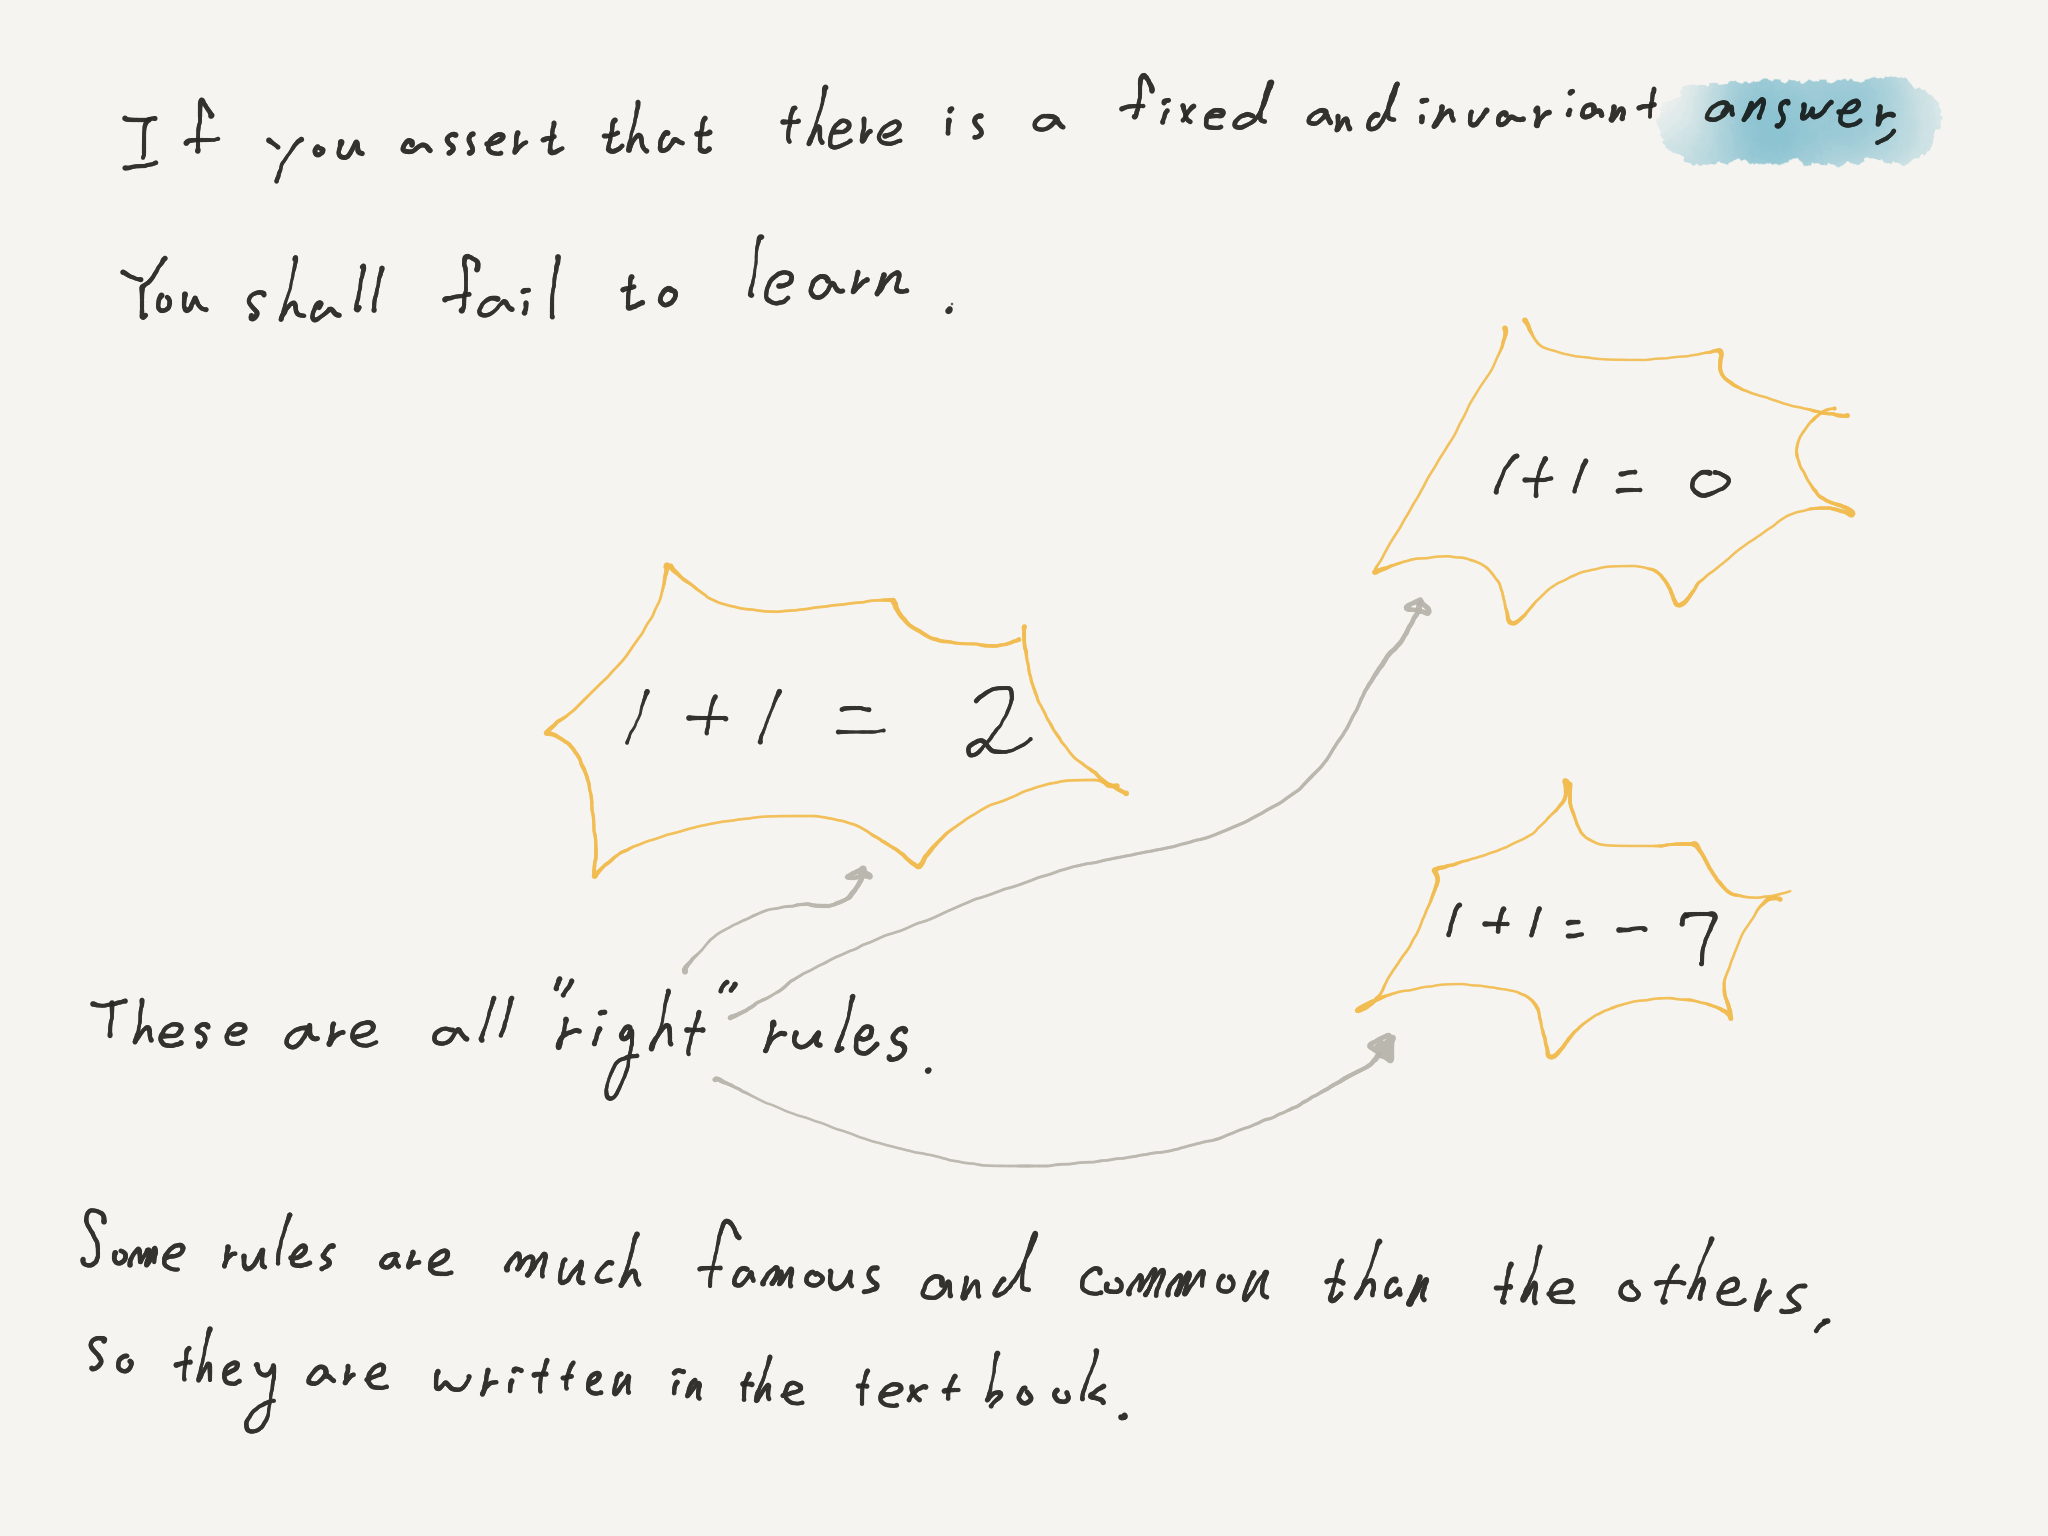 If you assert that there is a fixed and invariant answer,
You shall fail to learn.
1+1= 0
1 + 1 = 2
1+1=-7
These are all "right" rules.
Some rules are much famous and common than the others,
so they are written in the textbook.